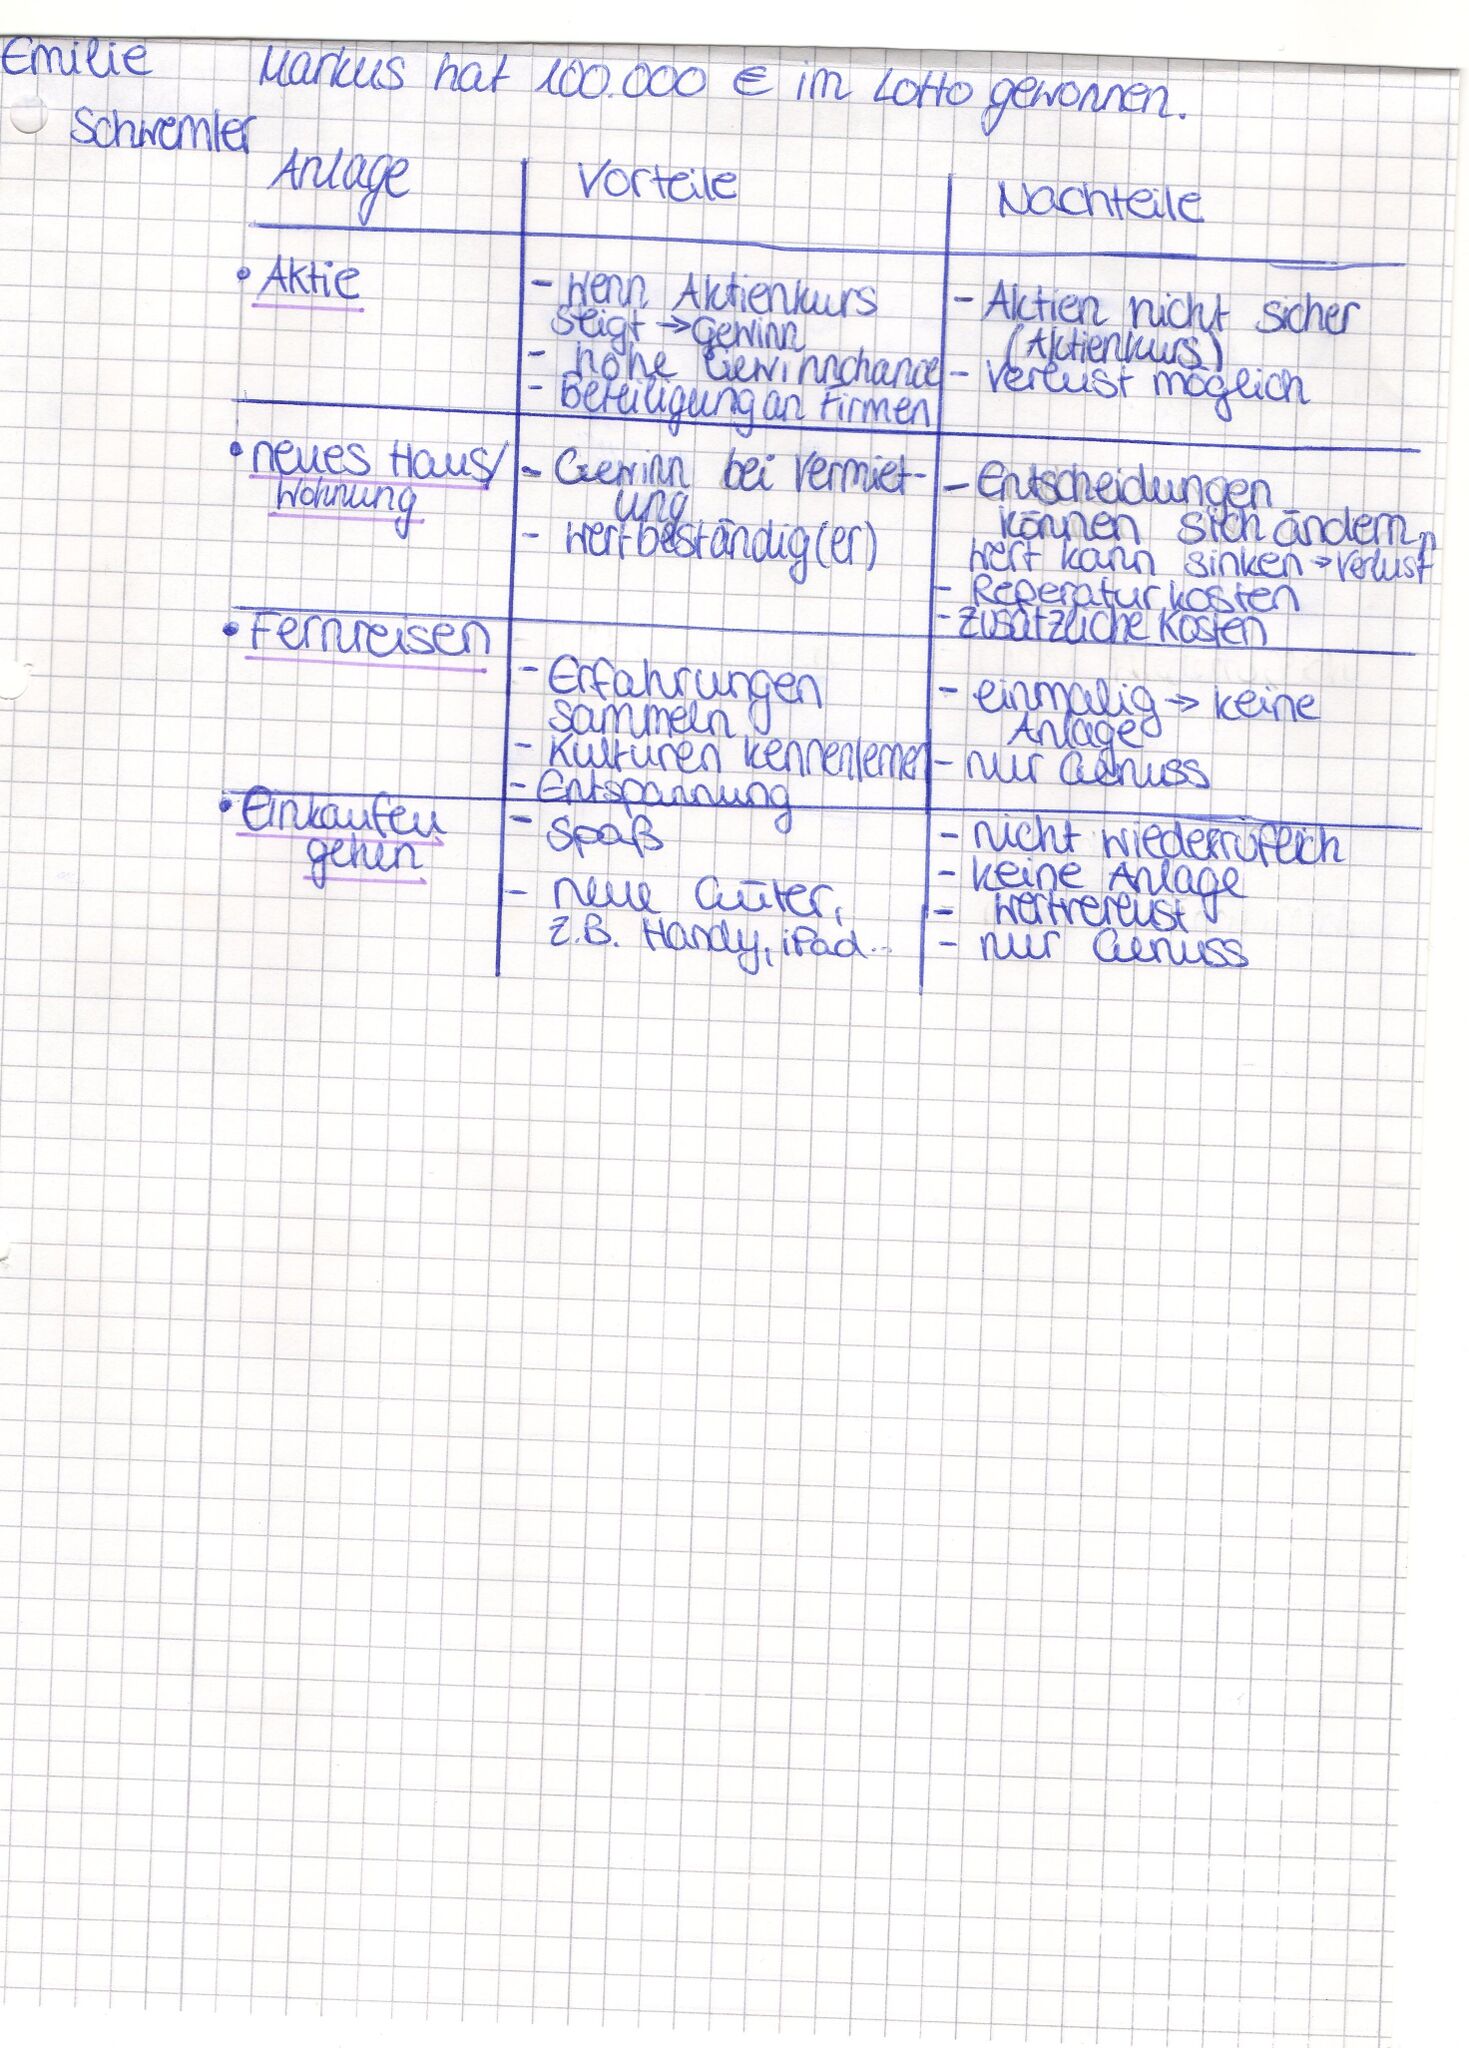 Emilie
Markus hat 100.000 € im Lotto gewonnen.
Schwemler
Anlage
Vorteile
Nachteile
• Aktie
- wenn Aktienkurs
steigt → Gewinn
- hohe Gewinnchance
- Beteiligung an Firmen
- Aktien nicht sicher
(Aktienkurs)
- Verlust möglich
• neues Haus/
Wohnung
- Gewinn bei Vermiet-
ung
- wertbeständig(er)
- Entscheidungen
können sich ändern,
Wert kann sinken → Verlust
- Reperaturkosten
- zusätzliche Kosten
• Fernreisen
- Erfahrungen
sammeln
- Kulturen kennenlernen
- Entspannung
- einmalig → keine
Anlage
- nur Genuss
• Einkaufen
gehen
- Spaß
- neue Güter,
z.B. Handy, iPad...
- nicht wiederrüflich
- keine Anlage
- Wertverlust
- nur Genuss